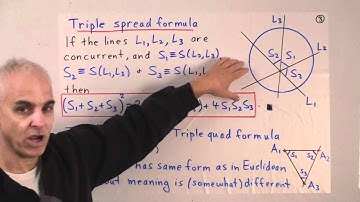 Triple spread formula
If the lines L1, L2, L3 are
concurrent, and S1 ≡ S(L2,L3),
S2 ≡ S(L1,L3) + S3 ≡ S(L1,L
then
(S1+S2+S3)² = 2 + 4S1S2S3.
Triple quad formula
has same form as in Euclidean
but meaning is (somewhat) different
③
L3
L2
S2 S1
S3
L1
A1 A2
S1 S2
S3
A3